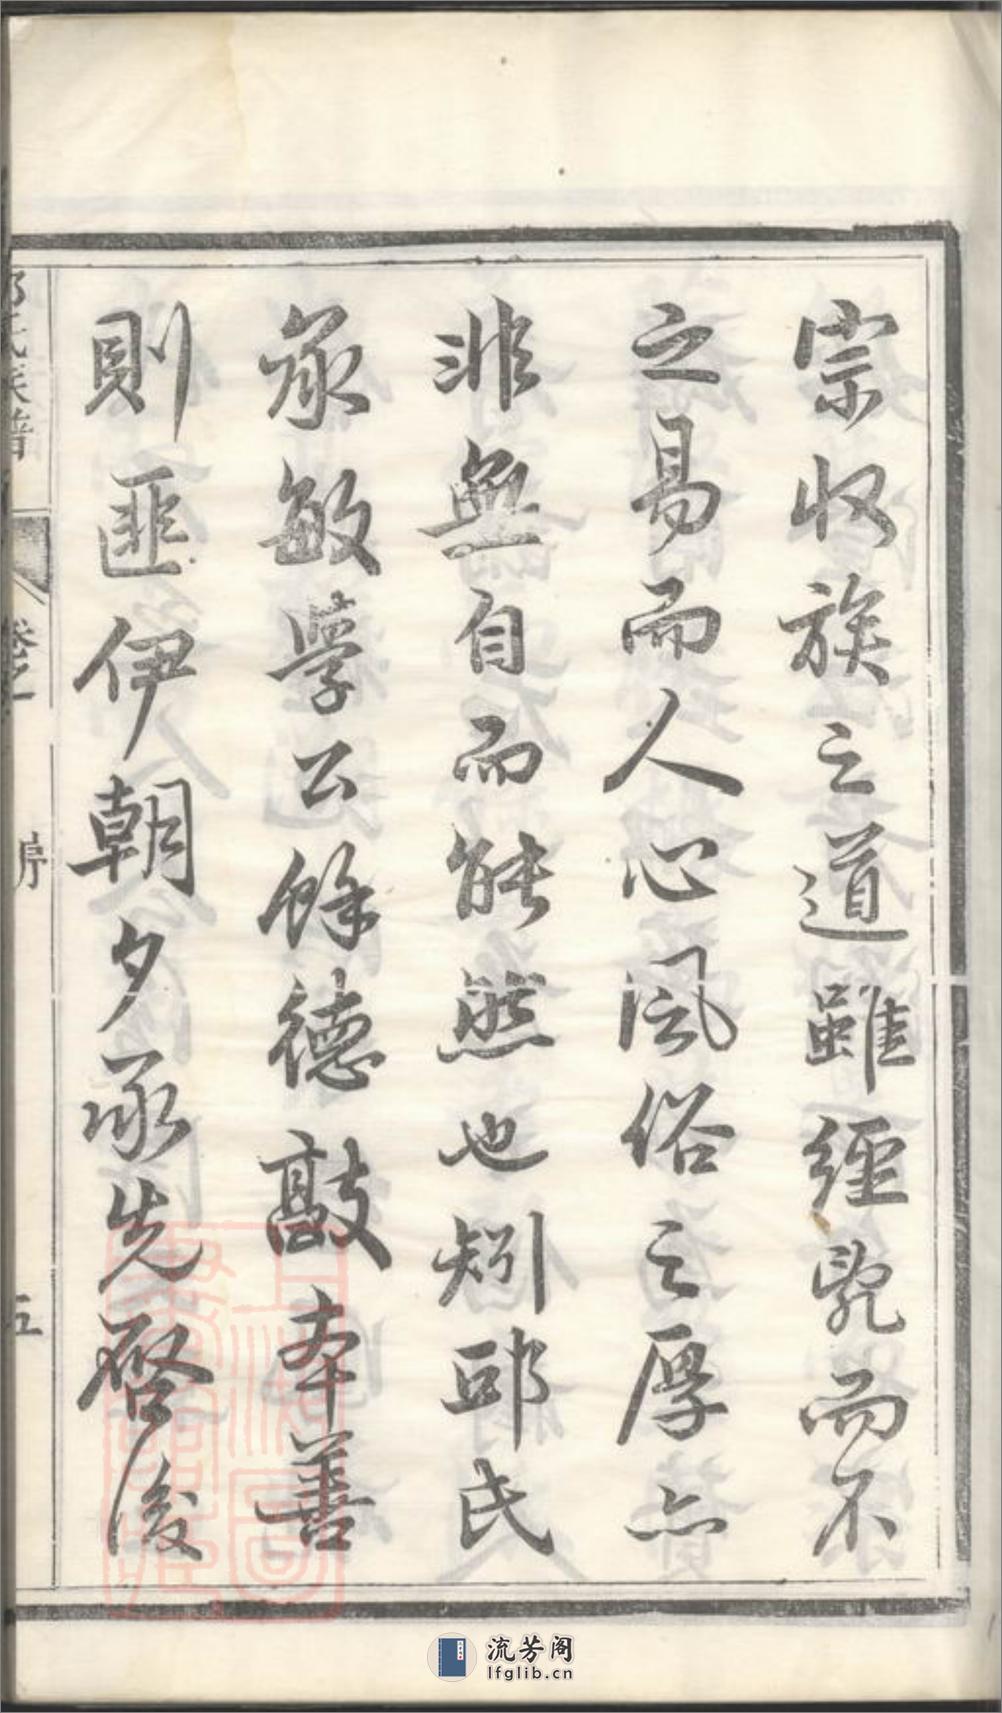 宗收族之道雖經亂而不
之易而人心風俗之厚亦
非無自而能然也矧邱氏
承敏學公餘德敦本善
則匪伊朝夕承先啓後
氏族譜 卷之 序 五
上海圖書館藏
流芳阁
lfglib.cn